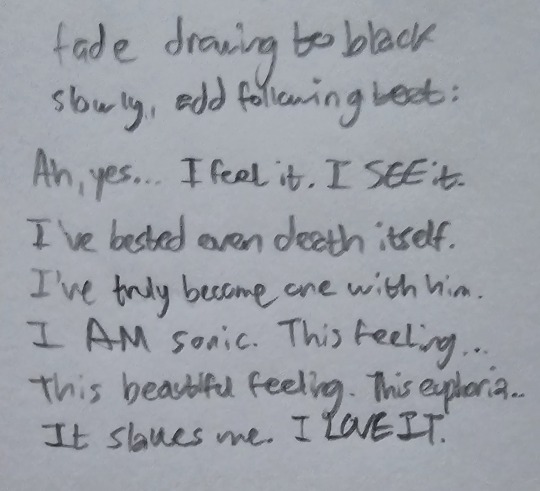 fade drawing to black
slowly, add following text:
Ah, yes... I feel it. I SEE it.
I've bested even death itself.
I've truly become one with him.
I AM sonic. This feeling...
this beautiful feeling. This euphoria..
It slaves me. I LOVE IT.